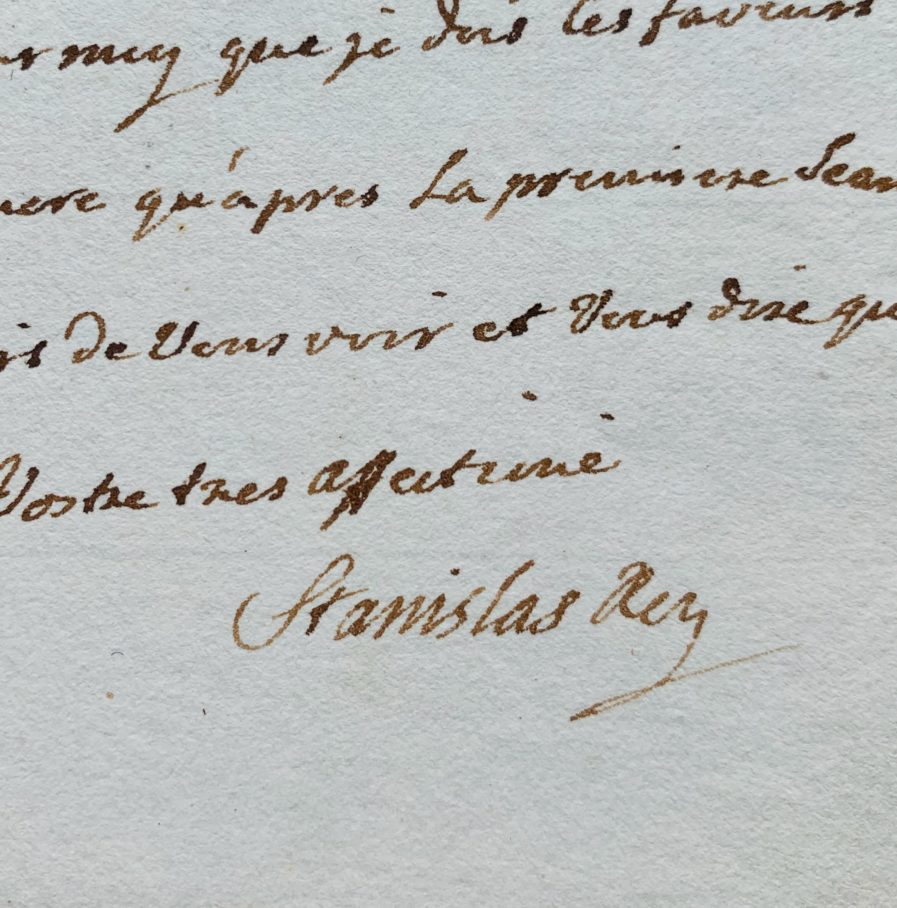 muy que je dois les faveurs
qu'apres La premiere Sean
de Vous voir et Vous dire que
Vostre tres affectioné
Stanislas Rey